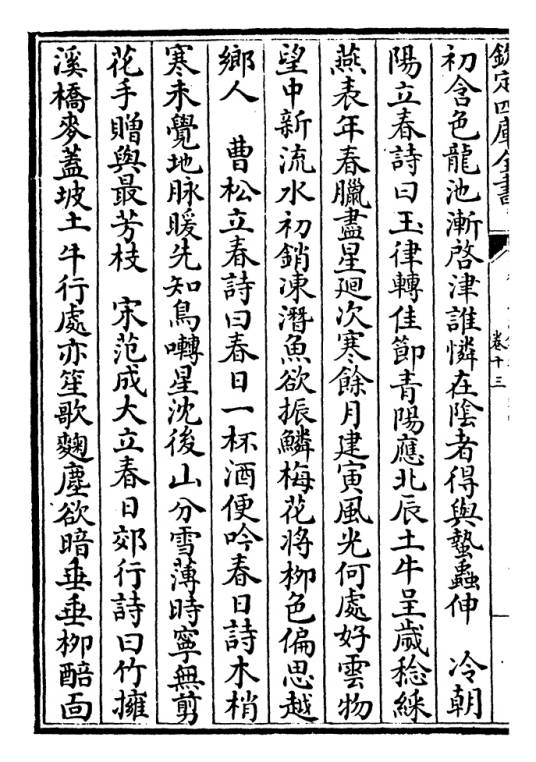 欽定四庫全書
卷十三
初含色龍池漸啓津誰憐在陰者得與蟄蟲伸　冷朝
陽立春詩曰玉律轉佳節青陽應北辰土牛呈歲稔綵
燕表年春臘盡星廻次寒餘月建寅風光何處好雲物
望中新流水初銷凍潛魚欲振鱗梅花將柳色偏思越
鄉人　曹松立春詩曰春日一杯酒便吟春日詩木梢
寒未覺地脉暖先知鳥囀星沈後山分雪薄時寧無剪
花手贈與最芳枝　宋范成大立春日郊行詩曰竹擁
溪橋麥蓋坡土牛行處亦笙歌麴塵欲暗垂垂柳醅面